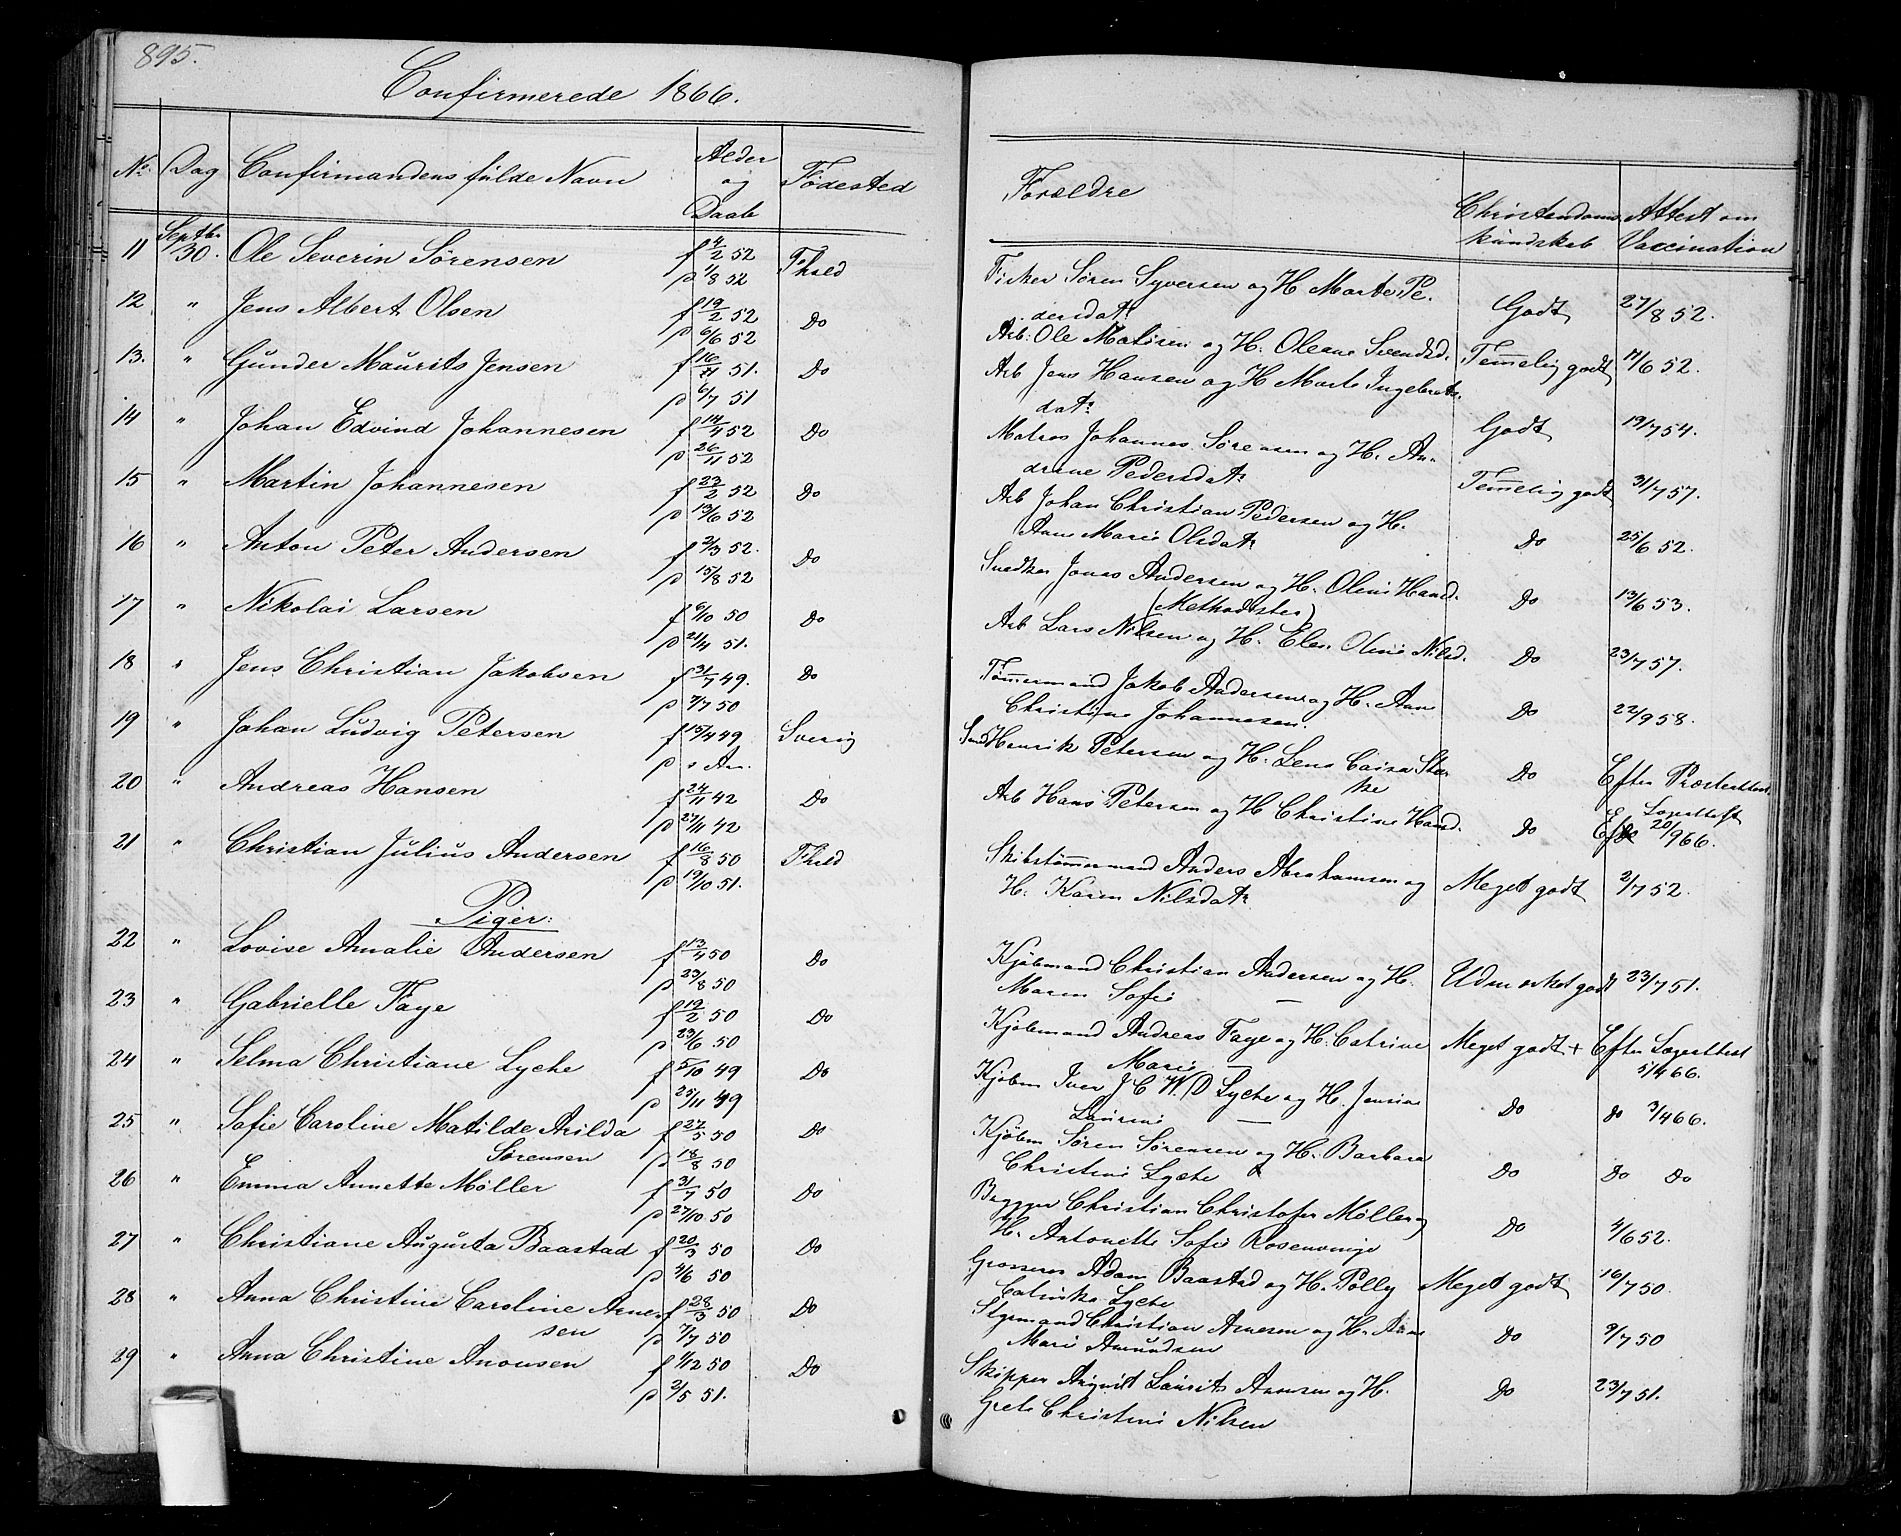 895.
Confirmerede 1866.
No. Dag Confirmandens fulde Navn Alder og Daab Fødested Forældre Christendoms kundskab Attest om Vaccination
11 Septbr 30. Ole Severin Sørensen f 4/2 52 Fhald Fisker Søren Syversen og H. Marte Pe-
p 1/8 52 dersdatr Godt 27/8 52.
12 " Jens Albert Olsen f 19/2 52 Do Arb: Ole Matisen og H. Oleane Svendsd. Temmelig godt 17/6 52.
p 6/6 52
13. " Gunder Maurits Jensen f 16/11 51. Do Arb Jens Hansen og H Marte Ingebrets-
p 6/7 51 datr Godt 19/7 54.
14 " Johan Edvind Johannesen f 14/4 52 Do Matros Johannes Sørensen og H. An-
p 26/11 52 drene Pedersdatr Temmelig godt 31/7 57.
15 " Martin Johannesen f 23/2 52 Do Arb Johan Christian Pedersen og H.
p 13/6 52 Anne Marie Olsdatr Do 25/6 52.
16 " Anton Peter Andersen f 2/3 52. Do Snedker Jonas Andersen og H. Oline Hansd.
p 15/8 52 (Methodister) Do 13/6 53.
17 " Nikolai Larsen f 6/10 50 Do Arb Lars Nilsen og H. Elen Oline Nilsd. Do 23/7 57.
p 21/4 51.
18 " Jens Christian Jakobsen f 31/7 49. Do Tømmermand Jakob Andersen og H. Ann
p 7/7 50 Christine Johannesen. Do 22/9 58.
19 " Johan Ludvig Petersen f 15/4 49 Sverig Henrik Petersen og H. Lena Caisa Star
p s. Aar. ke Do Efter Præsteattest
20 " Andreas Hansen f 24/11 42 Do Arb Hans Petersen og H Christine Hansd. Do 20/9 66.
p 27/11 42
21 " Christian Julius Andersen f 16/8 50 Fhald Skibstømmermand Anders Abrahamsen og Meget godt 2/7 52.
p 19/10 51. H. Karen Nilsdatr
Piger:
22 " Lovise Amalie Andersen f 13/4 50 Do Kjøbmand Christian Andersen og H. Udmærket godt 23/7 51.
p 23/8 50 Maren Sofie —
23 " Gabrielle Faye f 19/2 50 Do Kjøbmand Andreas Faye og H. Catrine Meget godt + Efter Lægattest
p 23/6 50 Marie — 5/4 66.
24 " Selma Christiane Lyche f 5/10 49 Do Kjøbm Iver J C W. D Lyche og H. Jensine
p 25/11 49 Laurine — Do Do 3/4 66.
25 " Sofie Caroline Matilde Arilda f 27/5 50 Do Kjøbm Søren Sørensen og H. Barbara
Sørensen p 18/8 50 Christine Lyche Do Do Do
26 " Emma Annette Møller f 31/7 50 Do Brygger Christian Christofer Møller og
p 27/10 50 H. Antonette Sofie Rosenvinge Do 4/6 52.
27 " Christiane Augusta Baastad f 20/3 50 Do Grosserer Adam Baastad og H. Polly Meget godt 16/7 50.
p 2/6 50 Catinka Lyche
28 " Anna Christine Caroline Arne- f 28/3 50 Do Styrmand Christian Arnesen og H. Ane
sen p 7/7 50 Marie Amundsen Do 9/7 50
29 " Anna Christine Anonsen f 1/12 50 Do Skipper Laurits Anonsen og H.
p 2/5 51. Grete Christine Nilsen Do 23/7 51.